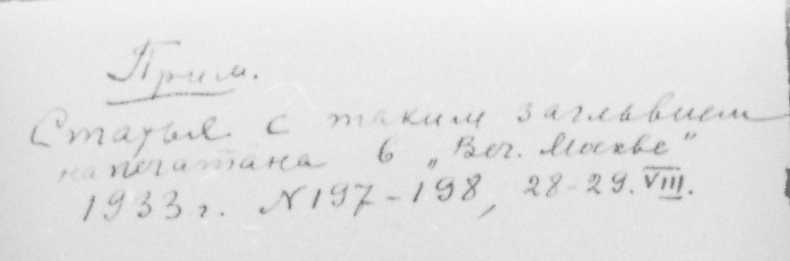 Прим.
Статья с таким заглавием
напечатана в „Веч. Москве"
1933 г. N 197-198, 28-29.VIII.